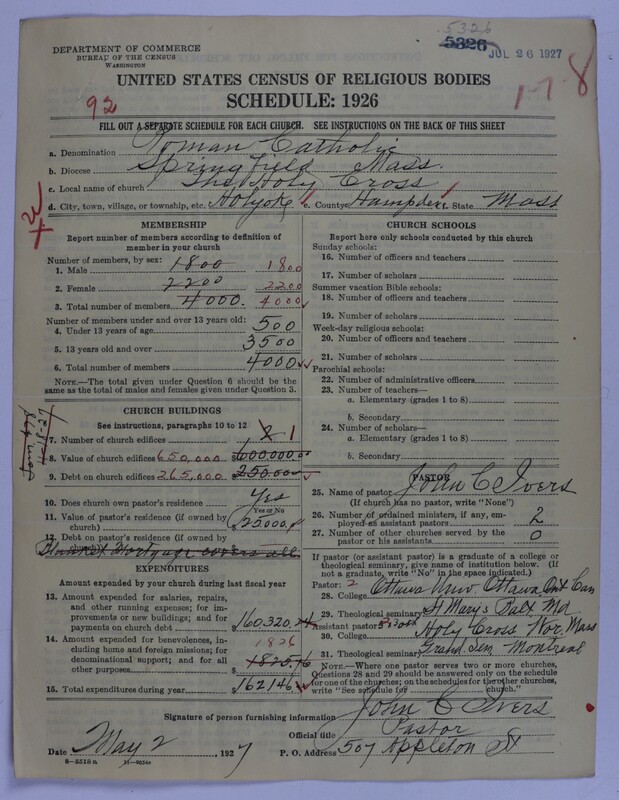 5326
DEPARTMENT OF COMMERCE
BUREAU OF THE CENSUS
WASHINGTON
5326
JUL 26 1927
1-7-8
UNITED STATES CENSUS OF RELIGIOUS BODIES
SCHEDULE: 1926
92
FILL OUT A SEPARATE SCHEDULE FOR EACH CHURCH. SEE INSTRUCTIONS ON THE BACK OF THIS SHEET
a. Denomination Roman Catholic
b. Diocese Springfield Mass.
c. Local name of church Holy Cross
d. City, town, village, or township, etc. Holyoke e. County Hampden f. State Mass
MEMBERSHIP
Report number of members according to definition of
member in your church
Number of members, by sex:
1. Male 1800 1800
2. Female 2200 2200
3. Total number of members 4000. 4000
Number of members under and over 13 years old:
4. Under 13 years of age 500
5. 13 years old and over 3500
6. Total number of members 4000
NOTE.—The total given under Question 6 should be the
same as the total of males and females given under Question 3.
CHURCH BUILDINGS
See instructions, paragraphs 10 to 12
7. Number of church edifices 2 1
8. Value of church edifices 650,000 $600000.00
9. Debt on church edifices 265,000 $250.00
10. Does church own pastor's residence? Yes
Yes or No
11. Value of pastor's residence (if owned by
church) $25000.
12. Debt on pastor's residence (if owned by
Blanket Mortgage covers all
EXPENDITURES
Amount expended by your church during last fiscal year
13. Amount expended for salaries, repairs,
and other running expenses; for im-
provements or new buildings; and for
payments on church debt $160320.
14. Amount expended for benevolences, 1826
including home and foreign missions; for
denominational support; and for all
other purposes $1825.76
15. Total expenditures during year $162146
CHURCH SCHOOLS
Report here only schools conducted by this church
Sunday schools:
16. Number of officers and teachers
17. Number of scholars
Summer vacation Bible schools:
18. Number of officers and teachers
19. Number of scholars
Week-day religious schools:
20. Number of officers and teachers
21. Number of scholars
Parochial schools:
22. Number of administrative officers
23. Number of teachers—
a. Elementary (grades 1 to 8)
b. Secondary
24. Number of scholars—
a. Elementary (grades 1 to 8)
b. Secondary
PASTOR
25. Name of pastor John C Ivers
(If church has no pastor, write "None")
26. Number of ordained ministers, if any, em-
ployed as assistant pastors 2
27. Number of other churches served by the
pastor or his assistants 0
If pastor (or assistant pastor) is a graduate of a college or
theological seminary, give name of institution below. (If
not a graduate, write "No" in the space indicated.)
Pastor: 2
28. College Ottawa Univ. Ottawa, Ont Can
29. Theological seminary St Mary's Balt Md
Assistant pastor:
30. College Holy Cross Wor. Mass
31. Theological seminary Grand Sem. Montreal
NOTE.—Where one pastor serves two or more churches,
Questions 28 and 29 should be answered only on the schedule
for one of the churches; on the schedules for the other churches,
write "See schedule for church."
Signature of person furnishing information John C Ivers
Official title Pastor
Date May 2, 1927 P. O. Address 507 Appleton St
8-5518a 11-9034a